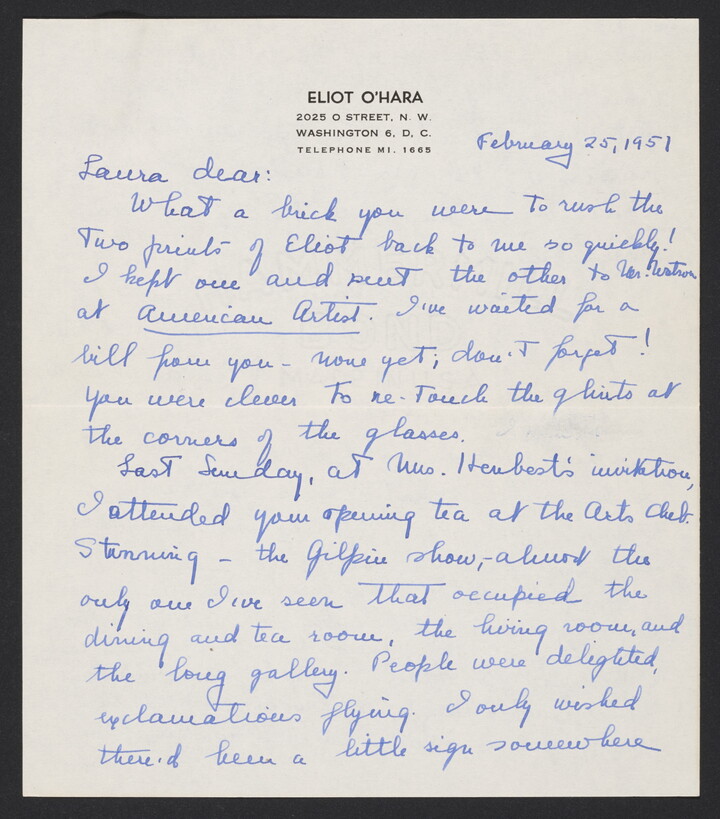 ELIOT O'HARA
2025 O STREET, N. W.
WASHINGTON 6, D. C.
TELEPHONE MI. 1665
February 25, 1951
Laura dear:
What a brick you were to rush the
two prints of Eliot back to me so quickly!
I kept one and sent the other to Mr. Watson
at American Artist. I've waited for a
bill from you – none yet; don't forget!
You were clever to re-touch the glints at
the corners of the glasses.
Last Sunday, at Mrs. Henbest's invitation,
I attended your opening tea at the Arts Club.
Stunning – the Gilpin show, – almost the
only one I've seen that occupied the
dining and tea room, the living room, and
the long gallery. People were delighted,
exclamations flying. I only wished
there'd been a little sign somewhere